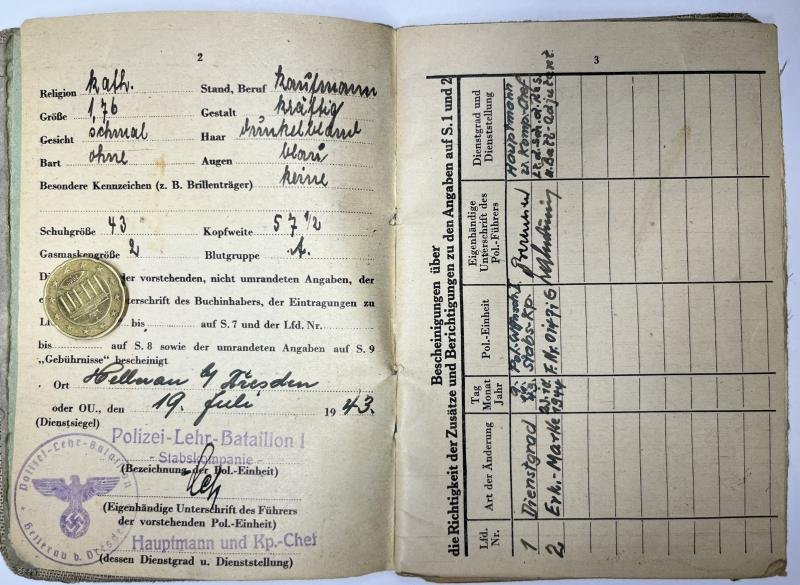 2
Religion kath. Stand, Beruf Kaufmann
Größe 176 Gestalt kräftig
Gesicht schmal Haar dunkelblond
Bart ohne Augen blau
Besondere Kennzeichen (z. B. Brillenträger) keine
Schuhgröße 43 Kopfweite 57 1/2
Gasmaskengröße 2 Blutgruppe A.
der vorstehenden, nicht umrandeten Angaben, der
terschrift des Buchinhabers, der Eintragungen zu
bis auf S. 7 und der Lfd. Nr.
bis auf S. 8 sowie der umrandeten Angaben auf S. 9
„Gebührnisse" bescheinigt
Ort Hellerau b/ Dresden
oder OU., den 19. Juli 1943.
(Dienstsiegel)
Polizei-Lehr-Bataillon I
- Stabskompanie -
(Bezeichnung der Pol.-Einheit)
(Eigenhändige Unterschrift des Führers
der vorstehenden Pol.-Einheit)
Hauptmann und Kp.-Chef
(dessen Dienstgrad u. Dienststellung)
Polizei-Lehr-Bataillon
Hellerau b. Dresden
3
Bescheinigungen über
die Richtigkeit der Zusätze und Berichtigungen zu den Angaben auf S. 1 und 2
Lfd. Nr.
Art der Änderung
Tag Monat Jahr
Pol.-Einheit
Eigenhändige Unterschrift des Pol.-Führers
Dienstgrad und Dienststellung
1 Dienstgrad Stabs-Kp. Hauptmann u. Komp.-Chef
2 Erk.-Marke 1944 F. Nr. Lt. d. Sch. u. Batl.-Adjutant.